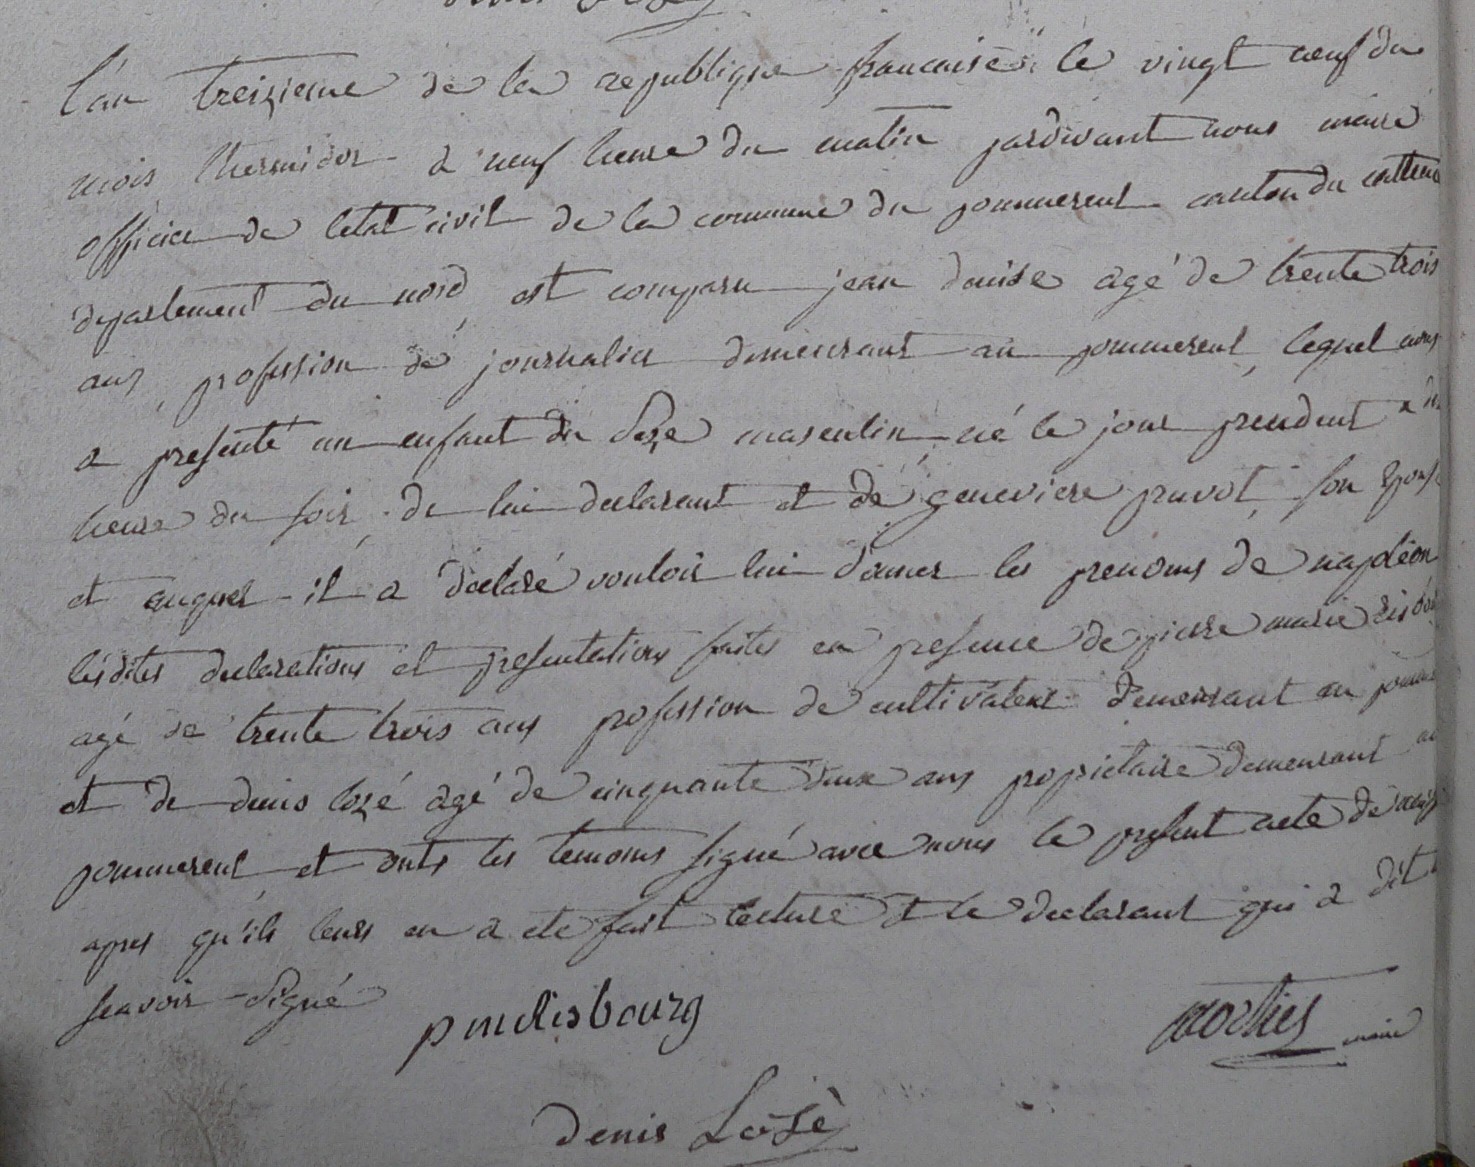 L'an treizieme de la republique francaise le vingt neuf du
mois thermidor a neuf heure du matin pardivant nous maire
officier de letat civil de la commune du pommereul canton du
departement du nord est comparu jean denise agé de trente trois
ans profession de journalier demeurant au pommereul lequel nous
a presenté un enfant du sexe masculin né le jour a
heure du soir de lui declarant et de genevieve pruvot son
et auquel il a declaré vouloir lui donner les prenoms de napoléon
lesdites declarations et presentations faites en presence de pierre marie
agé de trente trois ans profession de cultivateur demeurant au
et de denis lozé agé de cinquante deux ans propietaire demeurant au
pommereul et onts les temoins signé avec nous le present acte de
apres qu'ils leurs en a ete fait lecture et le declarant qui a dit
scavoir signé
p m disbourg
maire
denis Losé